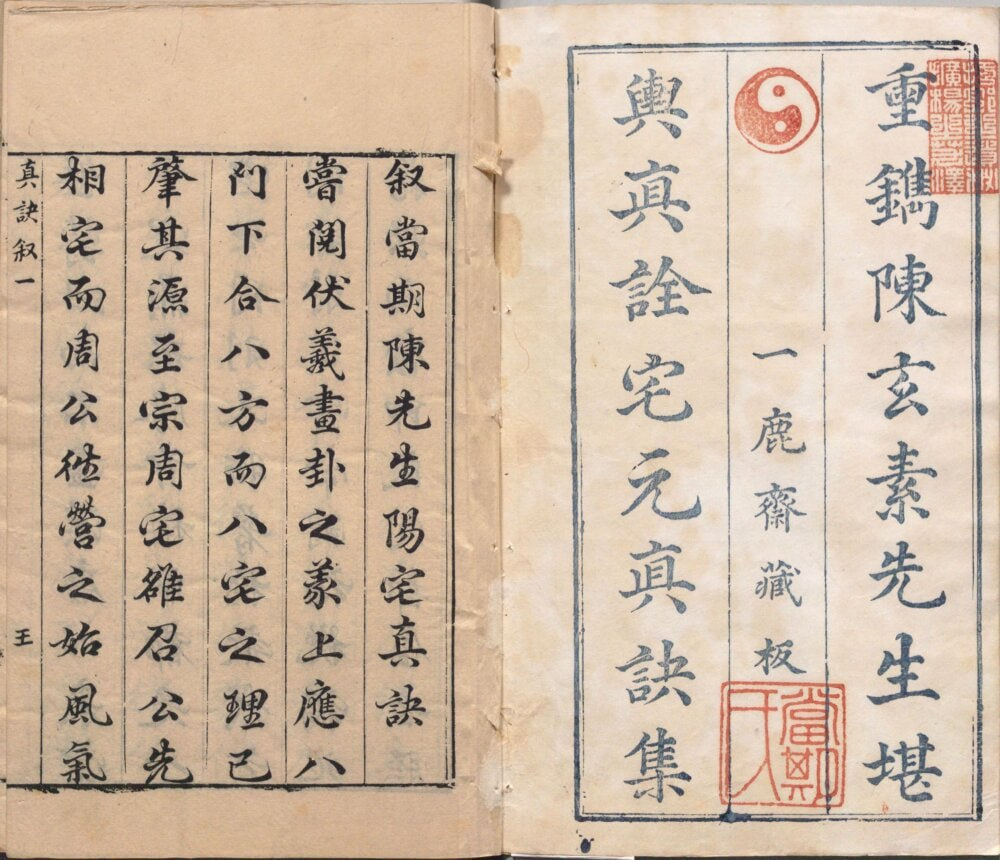 重鐫陳玄素先生堪
一鹿齋藏板
輿眞詮宅元眞訣集
當期氏
叙當期陳先生陽宅真訣
嘗閱伏羲畫卦之義上應八
門下合八方而八宅之理已
肇其源至宗周宅雒召公先
相宅而周公徃營之始風氣
真訣叙一
王